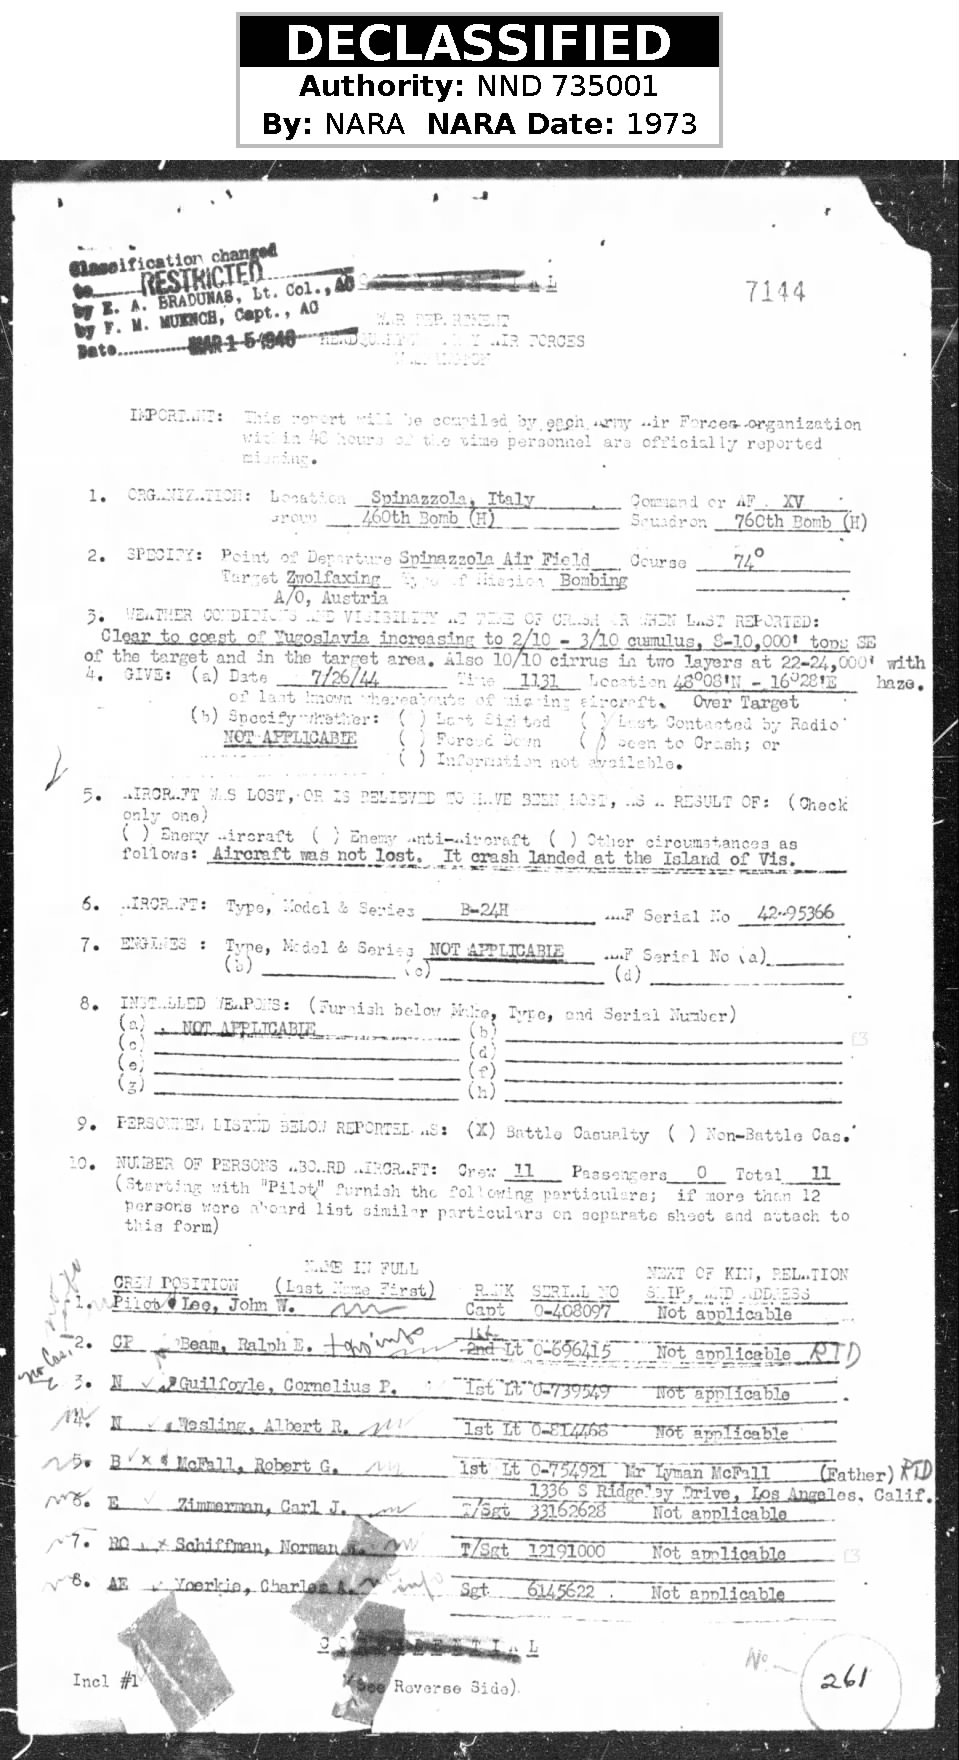 DECLASSIFIED
Authority: NND 735001
By: NARA NARA Date: 1973
Classification changed
to RESTRICTED
by E. A. BRADUNAS, Lt. Col., AG
by F. M. MUENCH, Capt., AC
Date MAR 15 1946
7144
WAR DEPARTMENT
HEADQUARTERS ARMY AIR FORCES
WASHINGTON
IMPORTANT: This report will be compiled by each Army Air Forces organization
within 48 hours of the time personnel are officially reported
missing.
1. ORGANIZATION: Location Spinazzola, Italy Command or AF XV
Group 460th Bomb (H) Squadron 760th Bomb (H)
2. SPECIFY: Point of Departure Spinazzola Air Field Course 74°
Target Zwolfaxing Type of Mission Bombing
A/O, Austria
3. WEATHER CONDITIONS AND VISIBILITY AT TIME OF CRASH OR WHEN LAST REPORTED:
Clear to coast of Yugoslavia increasing to 2/10 - 3/10 cumulus, 8-10,000' tops SE
of the target and in the target area. Also 10/10 cirrus in two layers at 22-24,000' with
4. GIVE: (a) Date 7/26/44 Time 1131 Location 48°08'N - 16°28'E haze.
of last known whereabouts of missing aircraft. Over Target
(b) Specify whether: ( ) Last Sighted ( ) Last Contacted by Radio
NOT APPLICABLE ( ) Forced Down ( ) Seen to Crash; or
( ) Information not available.
5. AIRCRAFT WAS LOST, OR IS BELIEVED TO HAVE BEEN LOST, AS A RESULT OF: (Check
only one)
( ) Enemy Aircraft ( ) Enemy Anti-Aircraft ( ) Other circumstances as
follows: Aircraft was not lost. It crash landed at the Island of Vis.
6. AIRCRAFT: Type, Model & Series B-24H AAF Serial No 42-95366
7. ENGINES : Type, Model & Series NOT APPLICABLE AAF Serial No (a)
(b) (c) (d)
8. INSTALLED WEAPONS: (Furnish below Make, Type, and Serial Number)
(a) NOT APPLICABLE (b)
(c) (d)
(e) (f)
(g) (h)
9. PERSONNEL LISTED BELOW REPORTED AS: (X) Battle Casualty ( ) Non-Battle Cas.
10. NUMBER OF PERSONS ABOARD AIRCRAFT: Crew 11 Passengers 0 Total 11
(Starting with "Pilot" furnish the following particulars; if more than 12
persons were aboard list similar particulars on separate sheet and attach to
this form)
NAME IN FULL NEXT OF KIN, RELATION
CREW POSITION (Last Name First) RANK SERIAL NO SHIP, AND ADDRESS
1. Pilot Lee, John W. Capt 0-408097 Not applicable
2. CP Beam, Ralph E. 1st 2nd Lt 0-696415 Not applicable RTD
no Cas.
3. N Guilfoyle, Cornelius P. 1st Lt 0-739549 Not applicable
4. N Wesling, Albert R. 1st Lt 0-814468 Not applicable
5. B McFall, Robert G. 1st Lt 0-754921 Mr Lyman McFall (Father) RTD
1336 S Ridgeley Drive, Los Angeles, Calif.
6. E Zimmerman, Carl J. T/Sgt 33162628 Not applicable
7. RO Schiffman, Norman T/Sgt 12191000 Not applicable
8. AE Yoerkie, Charles A. info Sgt 6145622 Not applicable
CONFIDENTIAL
No
Incl #1 (See Reverse Side) 261